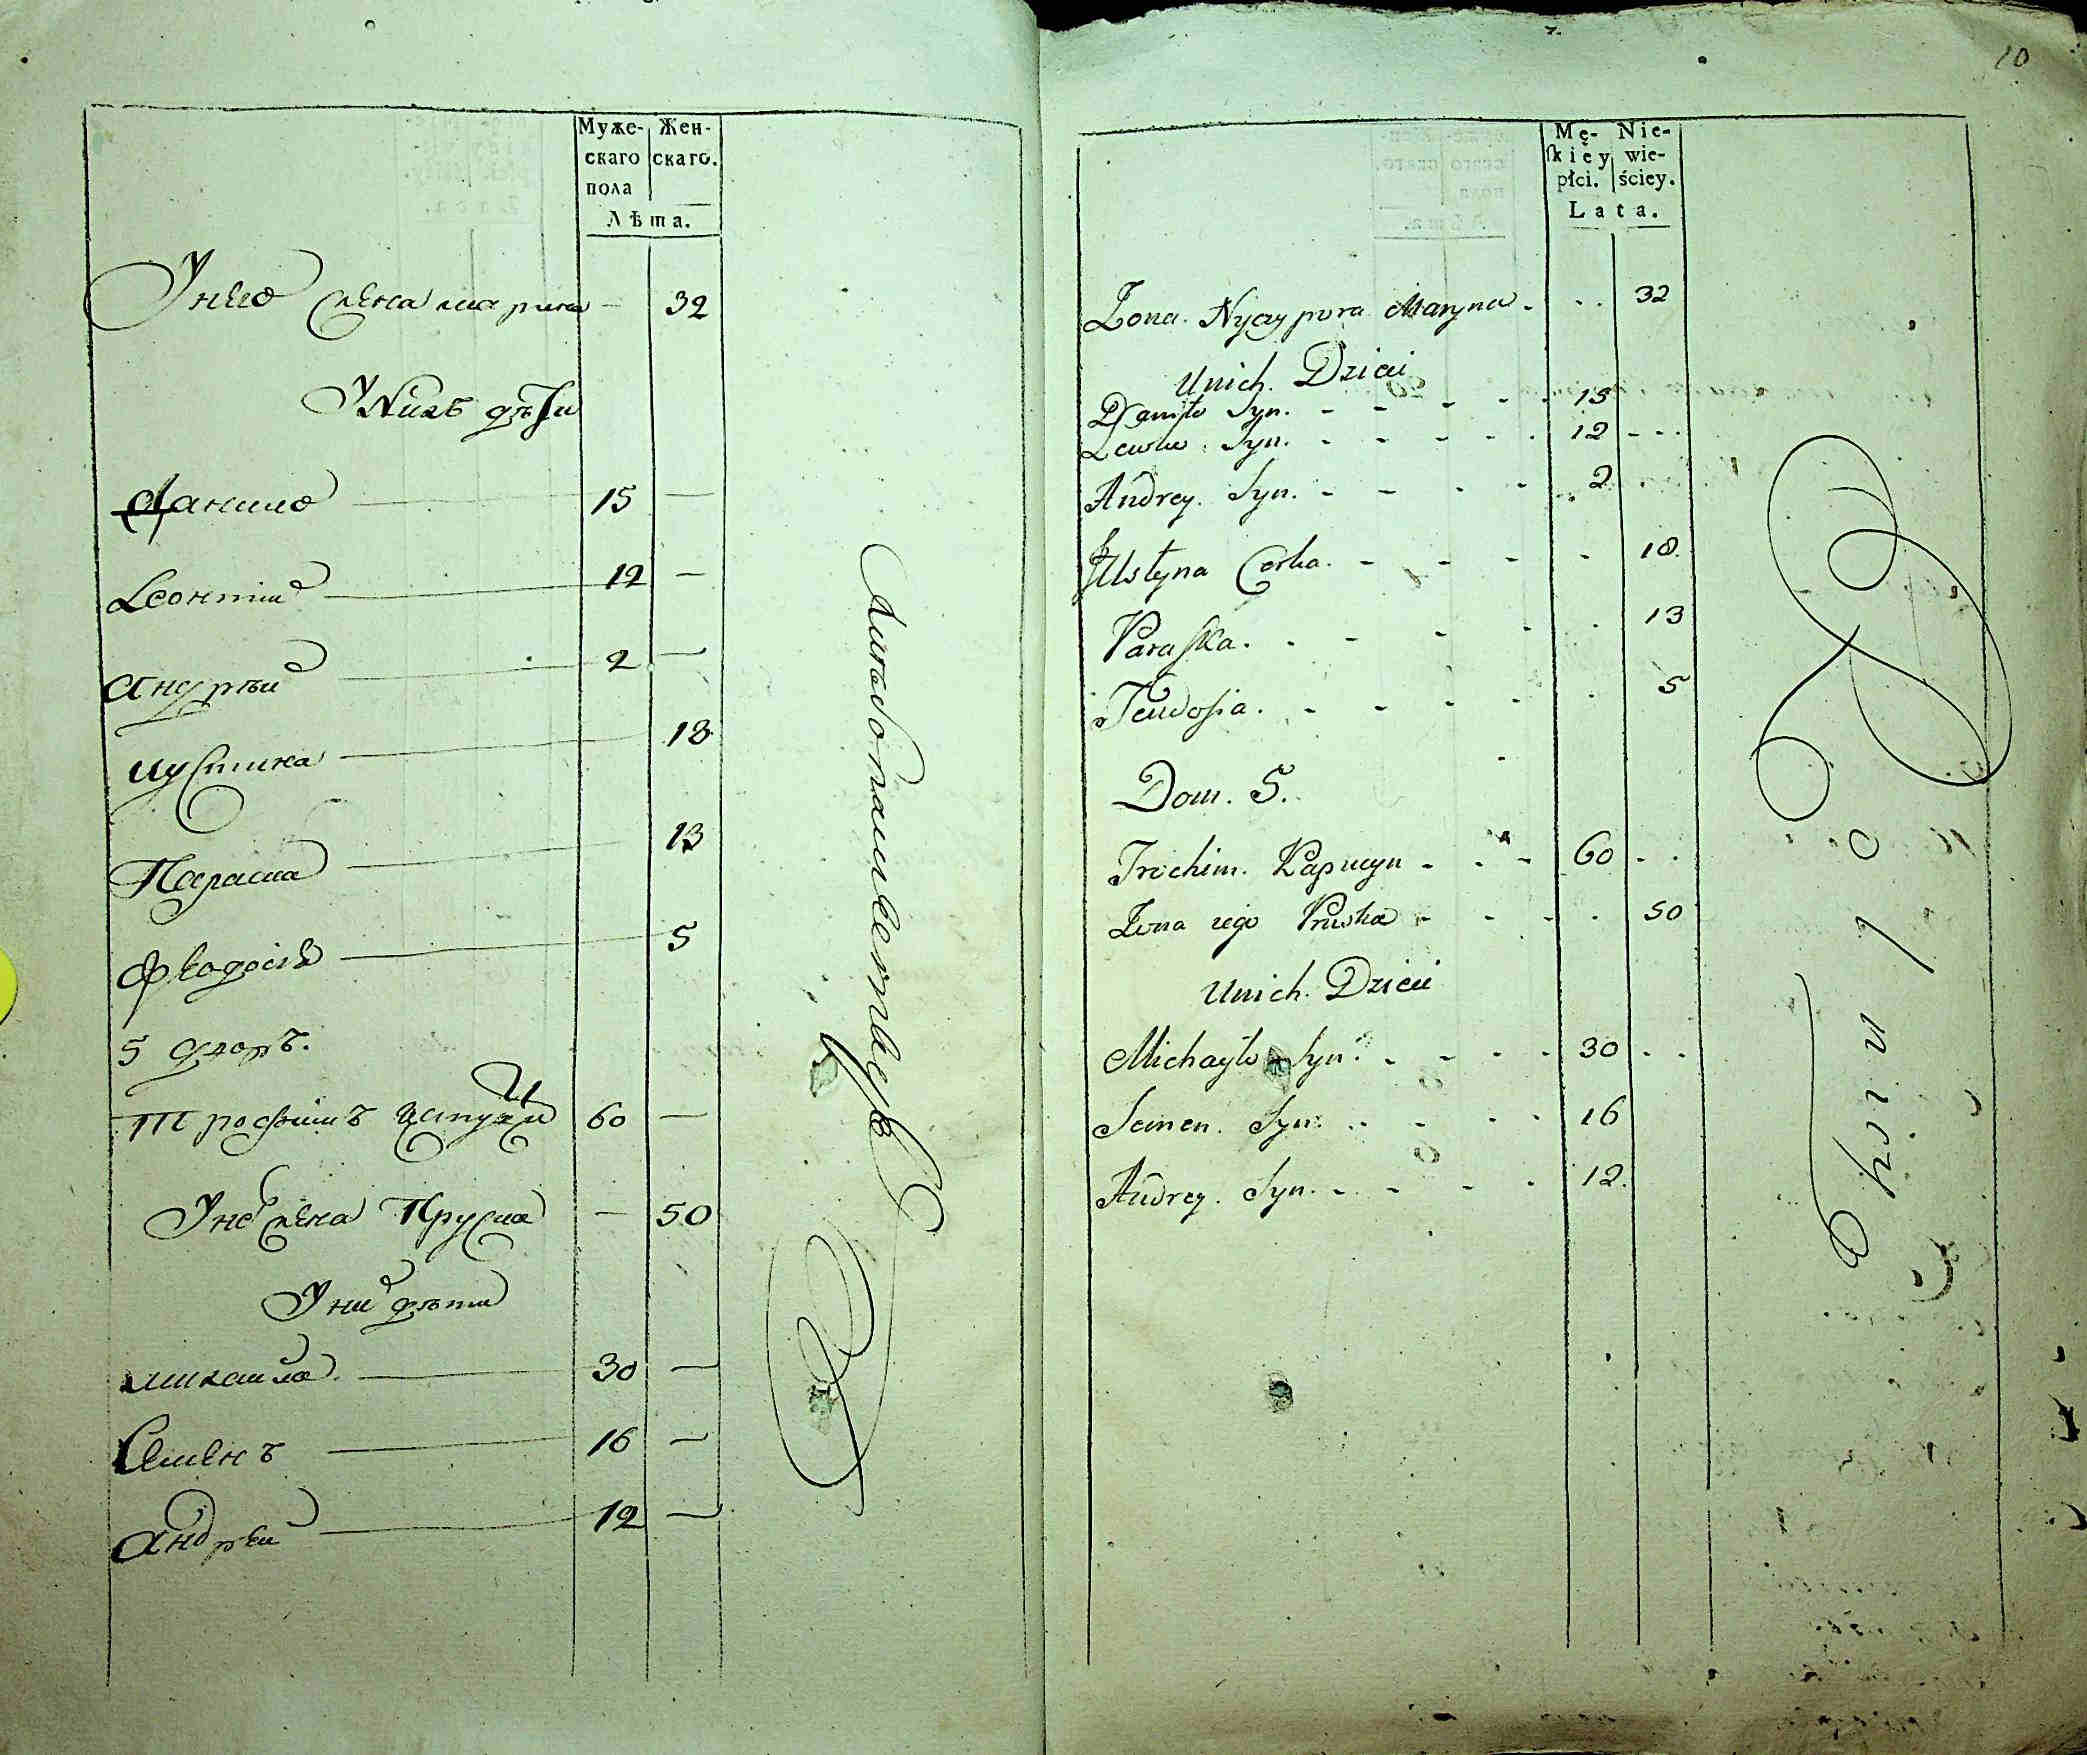 Муже- Жен-
скаго скаго.
пола
Лѣта.
У него жена марина — 32
У Нихъ дѣти
Данило — 15 —
Леонтий — 12 —
андрѣй — 2 —
иустина — 18
Параска — 13
Феодосия — 5
5 дворъ.
Трофимъ 60 —
У нег жена Пруска — 50
У них дѣти
михайла — 30 —
Семенъ — 16 —
андрей — 12 —
10
Mę- Nie-
ſkiey wie-
płci. ściey.
Lata.
Zona. Nyczypora Maryna - . . 32
Unich. Dzieci
Daniło Syn. - - - - - 15
Syn. - - - - . 12 - - .
Andrey. Syn. - - - - . 2 .
Justyna Corka. - - - - 18.
Paraſka. . - - - . 13
Feudosia. - - - - . 5
Dom. 5.
Trochim. - . - 60 - .
Zona iego Pruska - - - . 50
Unich. Dzieci
Michayło Syn. - - - . 30 . .
Semen. Syn. . . - - . 16
Andrey. Syn. - - - - . 12.